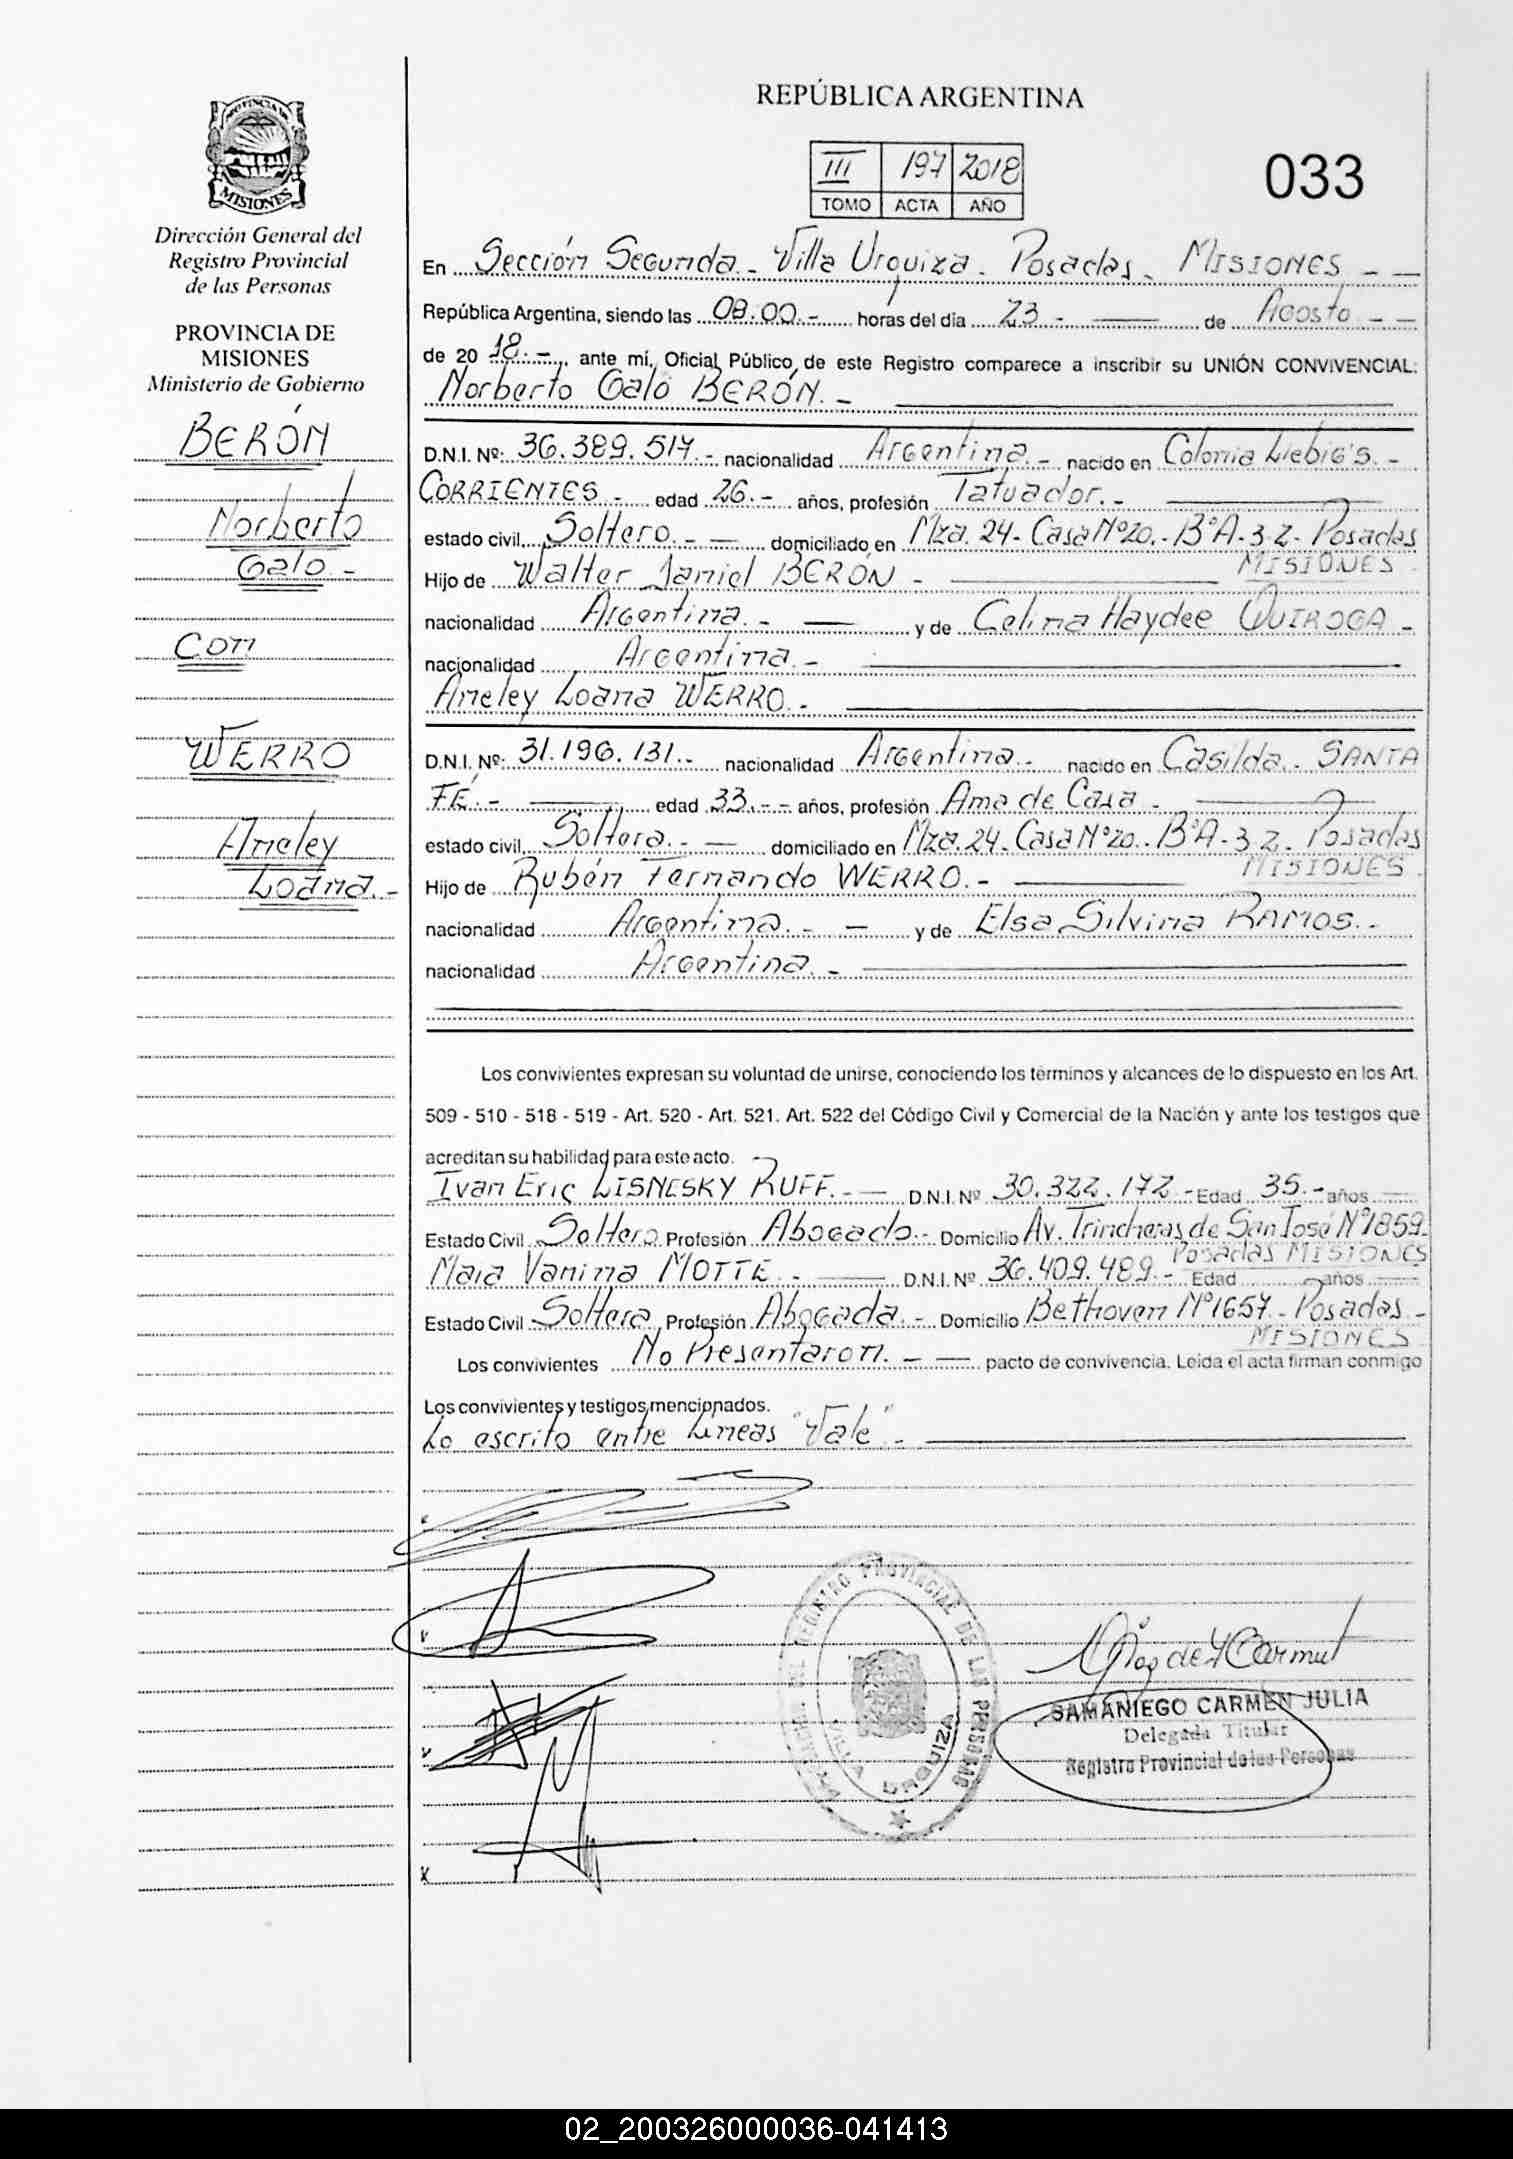 PROVINCIA DE
MISIONES
Dirección General del
Registro Provincial
de las Personas
PROVINCIA DE
MISIONES
Ministerio de Gobierno
BERÓN
Norberto
Galo -
Con
WERRO
Aneley
Loana.-
REPÚBLICA ARGENTINA
III 197 2018
TOMO ACTA AÑO
033
En Sección Segunda - Villa Urquiza - Posadas - MISIONES - -
República Argentina, siendo las 08:00.- horas del día 23 - de Agosto - -
de 20 18.- , ante mí, Oficial Público, de este Registro comparece a inscribir su UNIÓN CONVIVENCIAL:
Norberto Galo BERÓN. -
D.N.I. Nº: 36.389.517.- nacionalidad Argentina.- nacido en Colonia Liebig's.-
CORRIENTES.- edad 26.- años, profesión Tatuador.-
estado civil Soltero.- - domiciliado en Mza. 24- Casa Nº20.- Bº A-3-2- Posadas
MISIONES -
Hijo de Walter Daniel BERÓN -
nacionalidad Argentina.- - y de Celina Haydee QUIROGA -
nacionalidad Argentina.-
Aneley Loana WERRO.-
D.N.I. Nº: 31.196.131.- nacionalidad Argentina.- nacido en Casilda.- SANTA
FÉ.- edad 33.-- años, profesión Ama de Casa -
estado civil Soltera.- - domiciliado en Mza.24- Casa Nº20.- Bº A-3-2- Posadas
MISIONES -
Hijo de Rubén Fernando WERRO.-
nacionalidad Argentina.- - y de Elsa Silvina RAMOS.-
nacionalidad Argentina.-
Los convivientes expresan su voluntad de unirse, conociendo los términos y alcances de lo dispuesto en los Art.
509 - 510 - 518 - 519 - Art. 520 - Art. 521. Art. 522 del Código Civil y Comercial de la Nación y ante los testigos que
acreditan su habilidad para este acto.
Ivan Eric LISNESKY RUFF.- - D.N.I. Nº 30.322.172.- Edad 35.- años
Estado Civil Soltero Profesión Abogado.- Domicilio Av. Trincheras de San José Nº1859-
Posadas MISIONES
Maia Vanina MOTTE.- D.N.I. Nº 36.409.489.- Edad años
Estado Civil Soltera Profesión Abogada.- Domicilio Bethoven Nº1657- Posadas.-
MISIONES
Los convivientes No Presentaron.- - pacto de convivencia. Leída el acta firman conmigo
Los convivientes y testigos mencionados.
Lo escrito entre Líneas "Vale" -
REGISTRO PROVINCIAL DE LAS PERSONAS
VILLA URQUIZA
SAMANIEGO CARMEN JULIA
Delegada Titular
Registro Provincial de las Personas
02_200326000036-041413